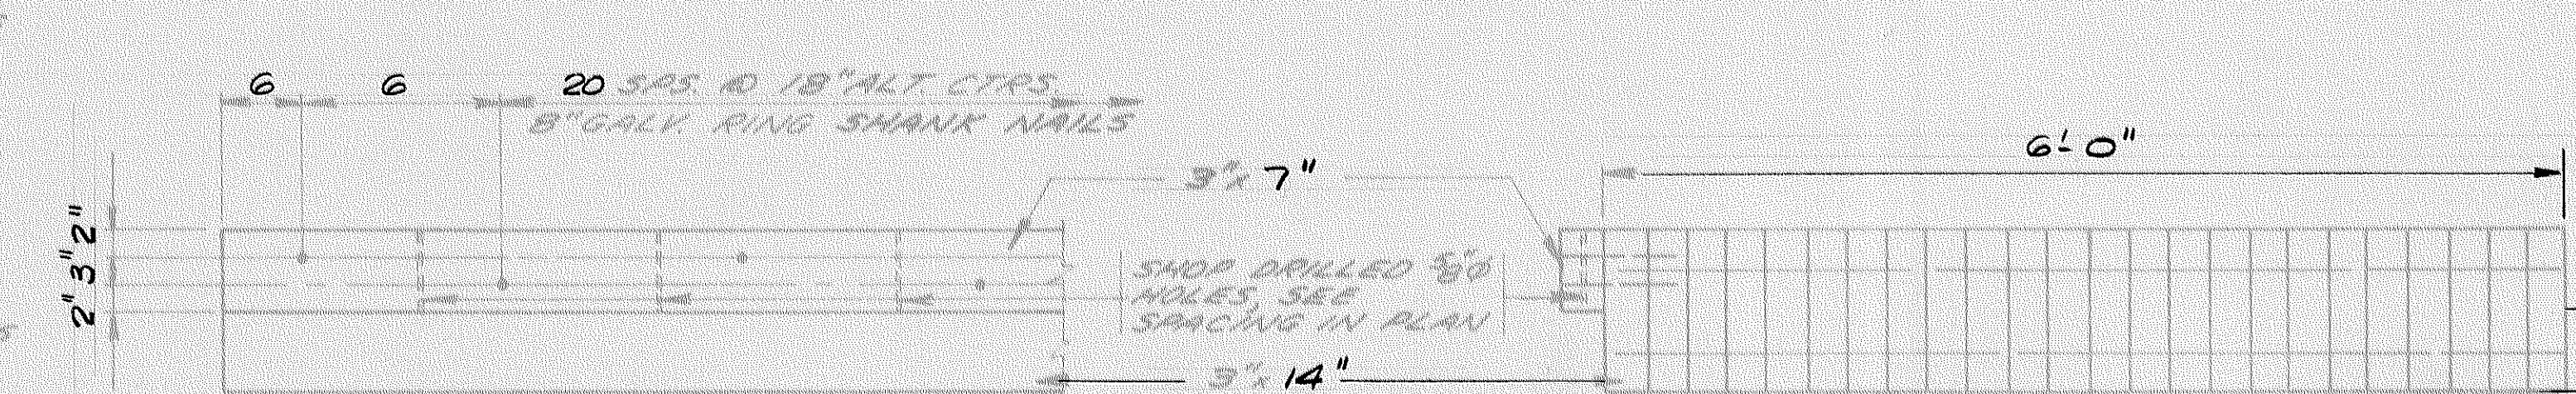 6 6 20 SPS. @ 18" ALT. CTRS.
8" GALV. RING SHANK NAILS
6'-0"
3" x 7"
2" 3" 2"
SHOP DRILLED 5/8"Ø
HOLES, SEE
SPACING IN PLAN
3" x 14"